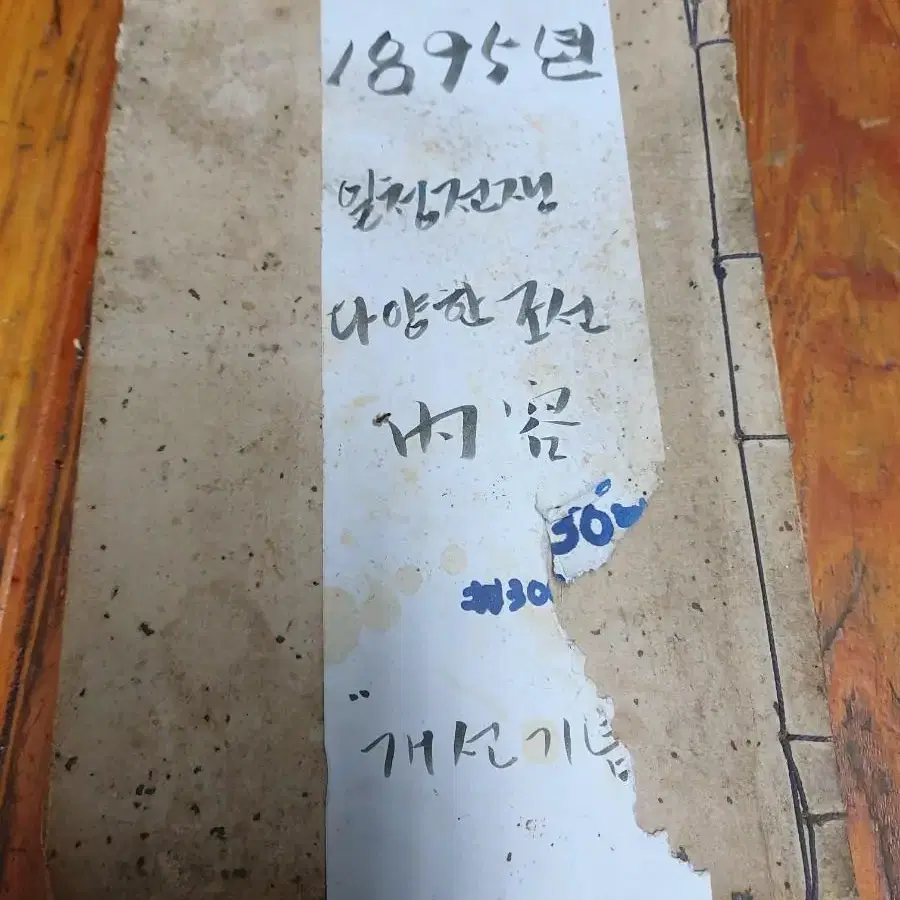 1895년
일청전쟁
다양한 조선
內容
50
30
개선기